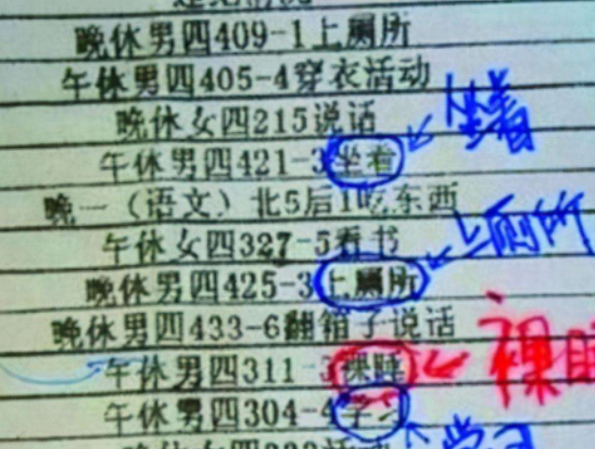 违纪情况
晚休男四409-1上厕所
午休男四405-4穿衣活动
晚休女四215说话
午休男四421-3坐着
坐着
晚一（语文）北5后1吃东西
午休女四327-5看书
上厕所
晚休男四425-3上厕所
晚休男四433-6翻箱子说话
午休男四311-3裸睡
裸睡
午休男四304-4学习
学习